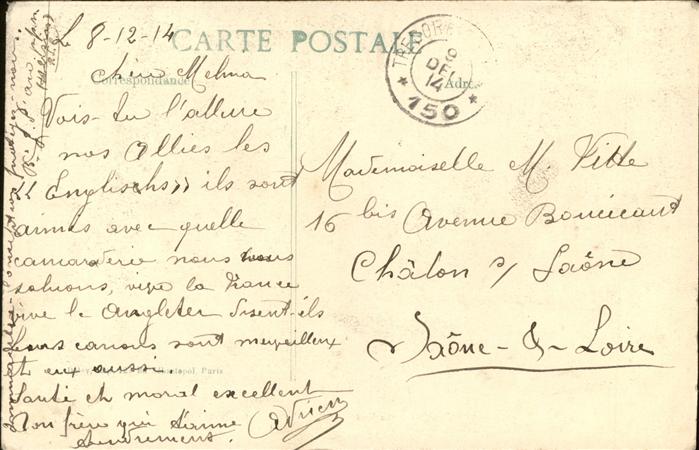 Le 8-12-14
CARTE POSTALE
Correspondance
Chère Melma
Vois-tu l'allure
nos Allies les
"Englischs" ils sont
aimés avec quelle
camaraderie nous nous
saluons, vive la France
vive le Angleter disent-ils
Leurs canons sont merveilleux
et eux aussi...
Santé et moral excellent
Ton frère qui t'aime
tendrement. Adrien
TRESOR
9
DEC
14
* 150 *
Adre
Mademoiselle M. Vitte
16 bis Avenue Boucicaut
Châlon s/ Saône
Saône-&-Loire
Paris